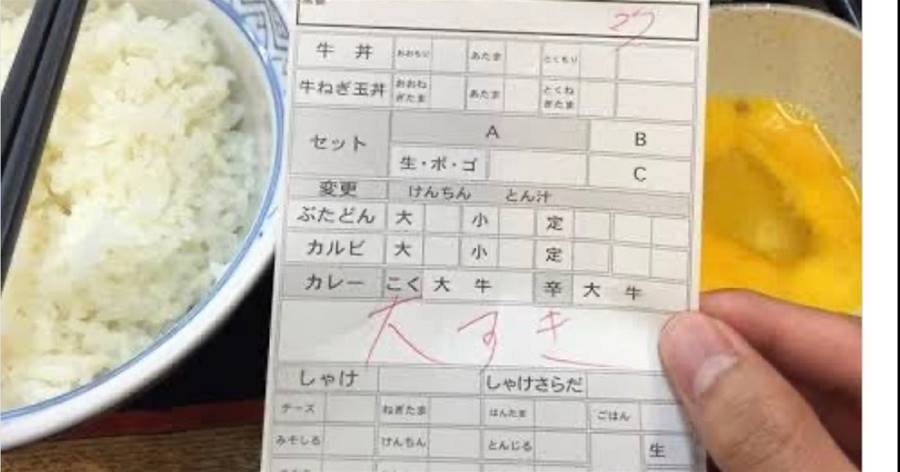 27
牛丼 おおもり あたま とくもり
牛ねぎ玉丼 おおねぎたま あたま とくねぎたま
セット A B
生・ポ・ゴ C
変更 けんちん とん汁
ぶたどん 大 小 定
カルビ 大 小 定
カレー こく 大 牛 辛 大 牛
大すき
しゃけ しゃけさらだ
チーズ ねぎたま はんたま ごはん
みそしる けんちん とんじる 生